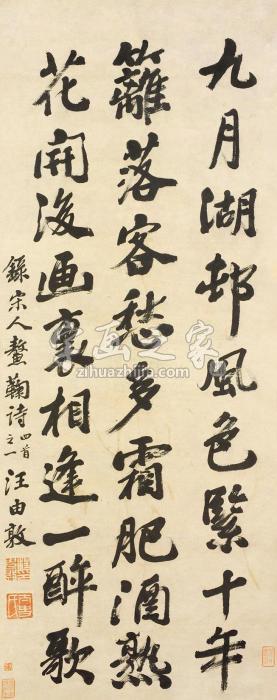 九月湖邨風色緊十年
籬落客愁多霜肥酒熟
花開後画裏相逢一醉歌
錄宋人螯菊诗四首之一 汪由敦
字画之家
zihuazhijia.com